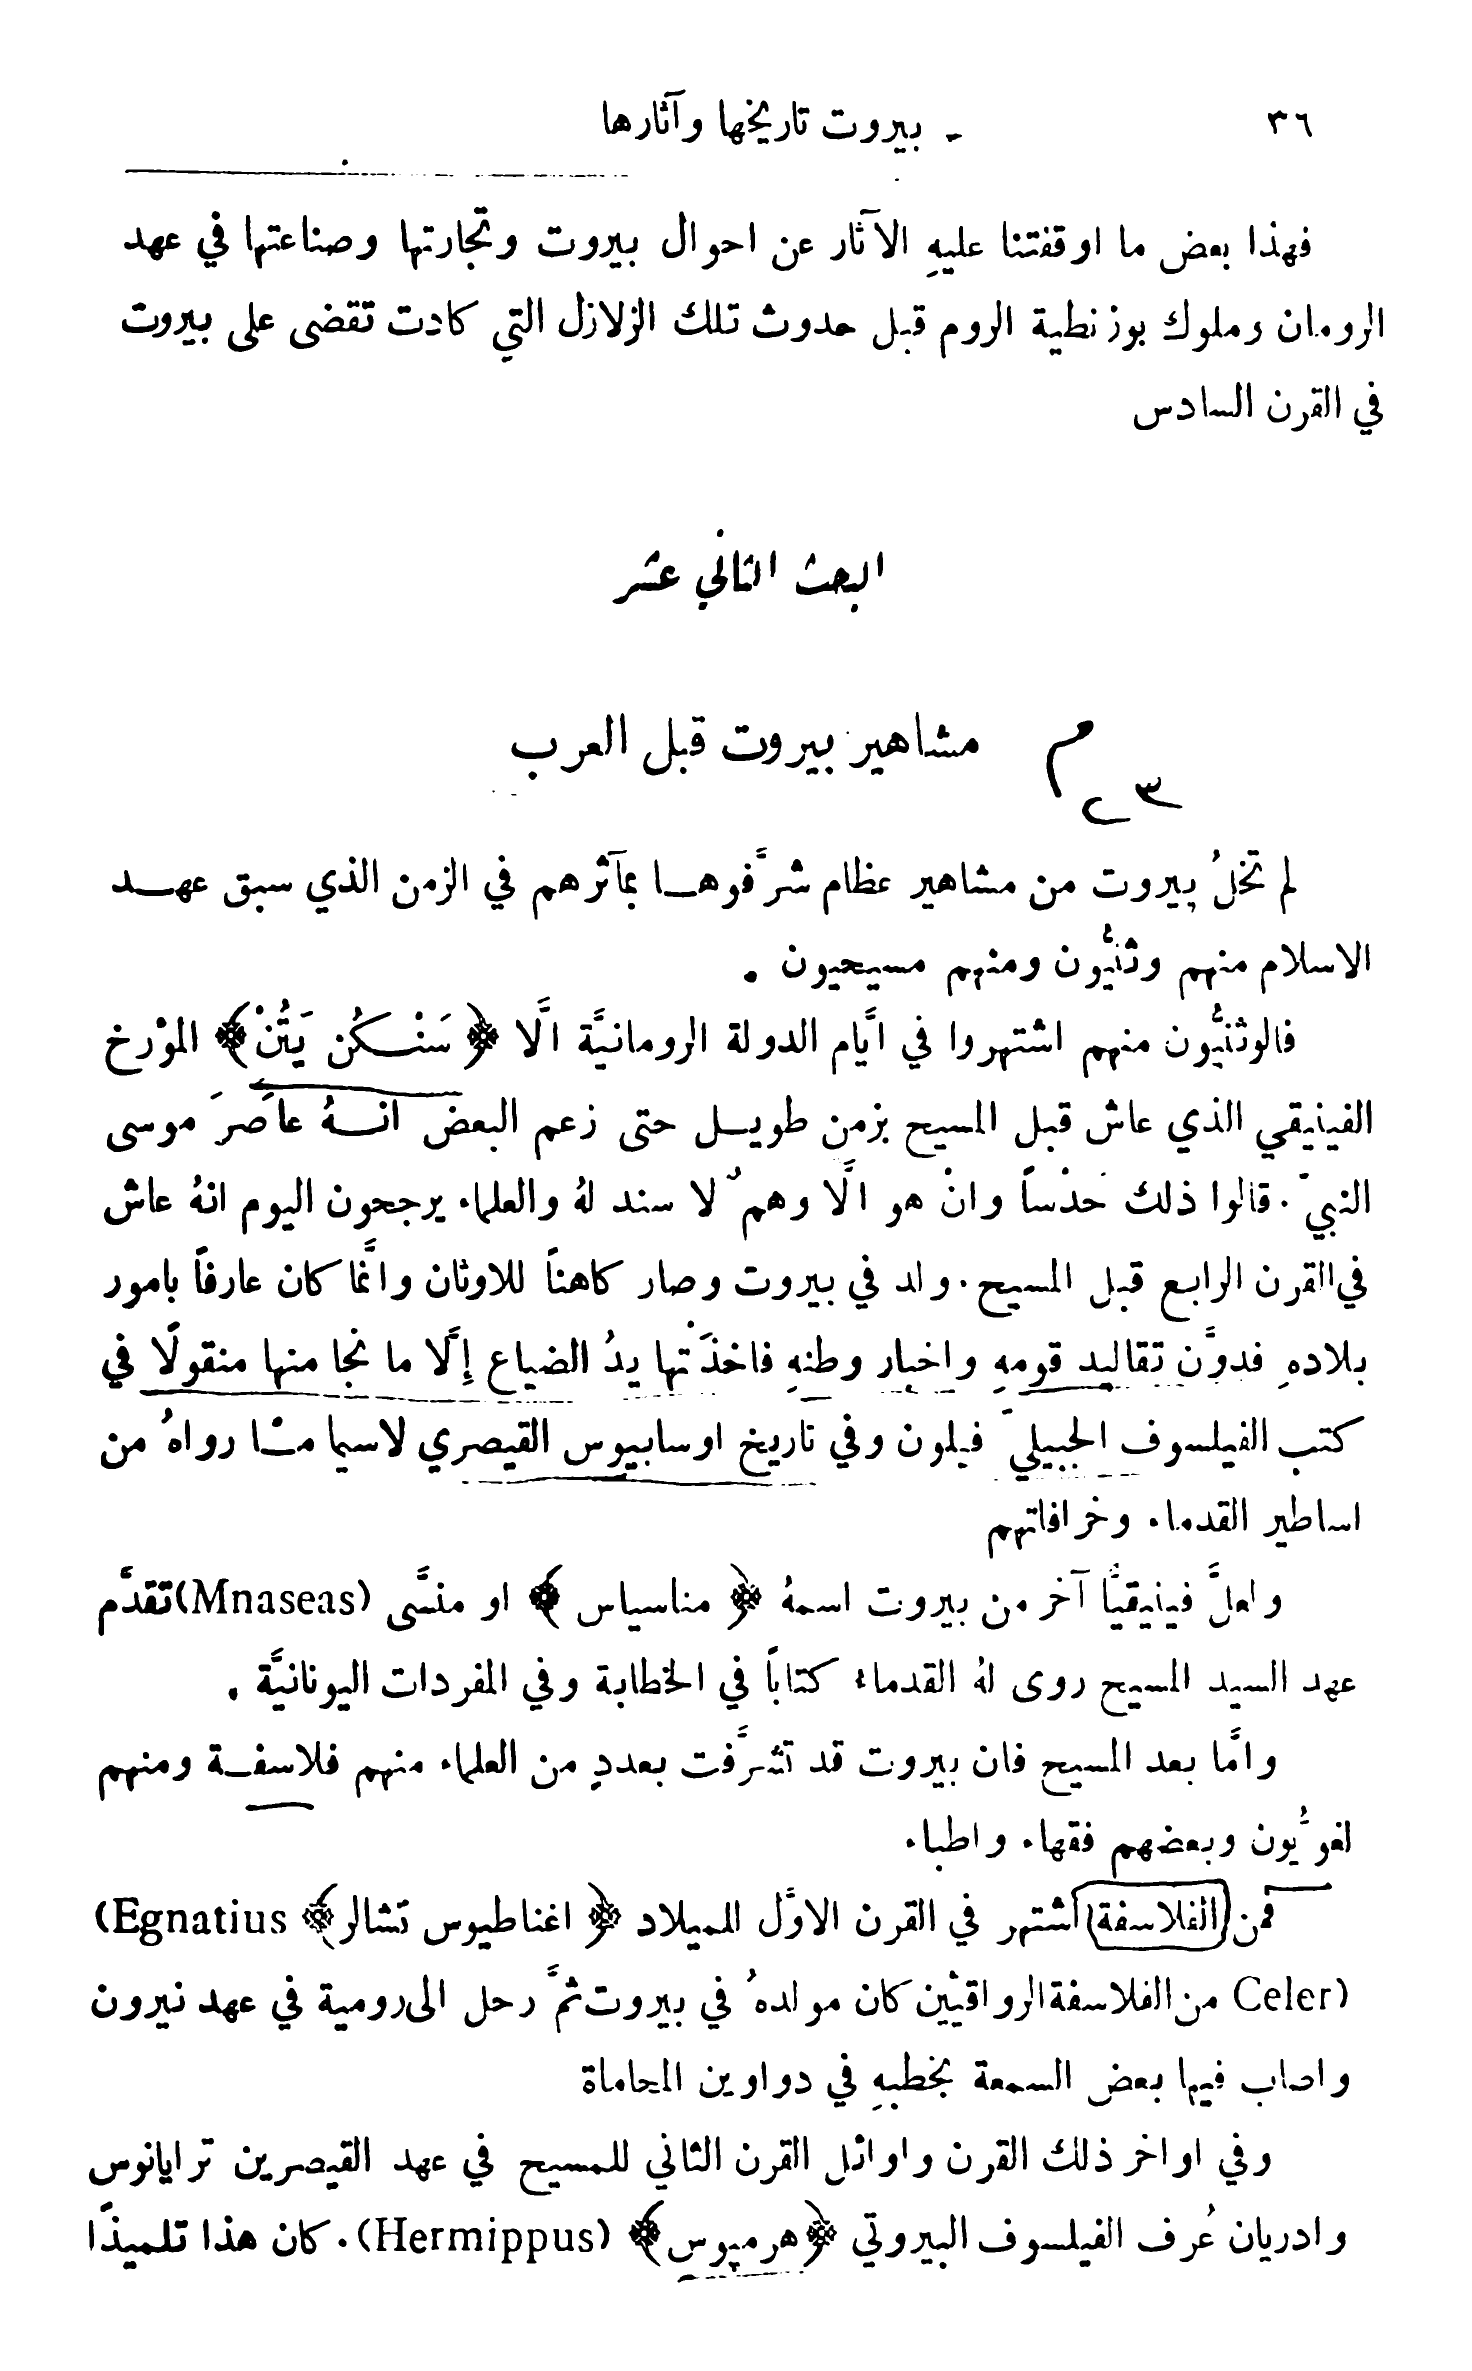 ٣٦ - بيروت تاريخها وآثارها
فهذا بعض ما اوقفتنا عليهِ الآثار عن احوال بيروت وتجارتها وصناعتها في عهد
الرومان وملوك بوزنطية الروم قبل حدوث تلك الزلازل التي كادت تقضى على بيروت
في القرن السادس
البحث الثاني عشر
مشاهير بيروت قبل العرب
لم تخلُ بيروت من مشاهير عظام شرَّفوهـا بمآثرهم في الزمن الذي سبق عهـد
الاسلام منهم وثنيُّون ومنهم مسيحيون .
فالوثنيُّون منهم اشتهروا في ايَّام الدولة الرومانيَّة الَّا ﴿سَنْـكُن يَتُنْ﴾ المؤرخ
الفينيقي الذي عاش قبل المسيح بزمن طويـل حتى زعم البعض انـهُ عاصَرَ موسى
النبيّ . قالوا ذلك حَدْساً وانْ هو الَّا وهمٌ لا سند لهُ والعلماء يرجحون اليوم انهُ عاش
في القرن الرابع قبل المسيح . ولد في بيروت وصار كاهناً للاوثان وانَّما كان عارفاً بامور
بلادهِ فدوَّن تقاليد قومهِ واخبار وطنهِ فاخذَتْها يدُ الضياع إِلَّا ما نجا منها منقولًا في
كتب الفيلسوف الجبيليّ فيلون وفي تاريخ اوسابيوس القيصري لاسيما ممَّا رواهُ من
اساطير القدماء وخرافاتهم
ولعلَّ فينيقيًّا آخر من بيروت اسمهُ ﴿ مناسياس ﴾ او منسَّى (Mnaseas) تقدَّم
عهد السيد المسيح روى لهُ القدماء كتاباً في الخطابة وفي المفردات اليونانيَّة .
وامَّا بعد المسيح فان بيروت قد تشرَّفت بعددٍ من العلماء منهم فلاسفـة ومنهم
لغويُّون وبعضهم فقهاء واطباء
فمن الفلاسفة اشتهر في القرن الاوَّل للميلاد ﴿ اغناطيوس تشالر﴾ (Egnatius
Celer) من الفلاسفة الرواقيّين كان مولدهُ في بيروت ثمَّ رحل الى رومية في عهد نيرون
واصاب فيها بعض السمعة بخطبهِ في دواوين المحاماة
وفي اواخر ذلك القرن واوائل القرن الثاني للمسيح في عهد القيصرين ترايانوس
وادريان عُرف الفيلسوف البيروتي ﴿هرمپوس﴾ (Hermippus) . كان هذا تلميذًا